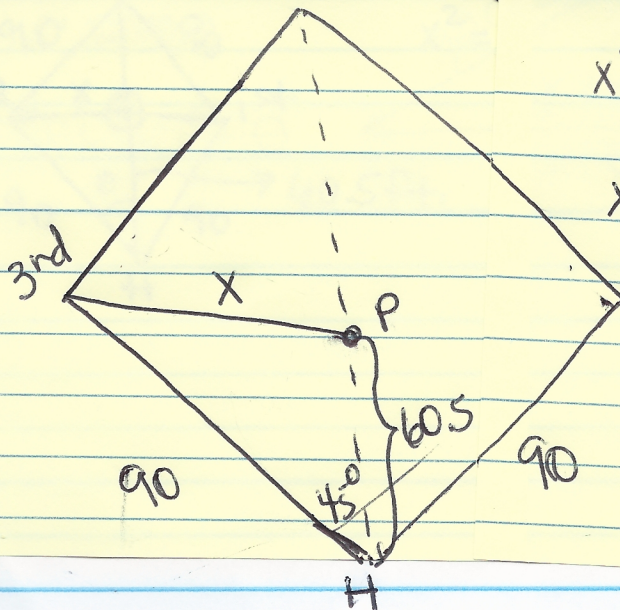 x
x
3rd
X
P
60.5
90
45°
90
H